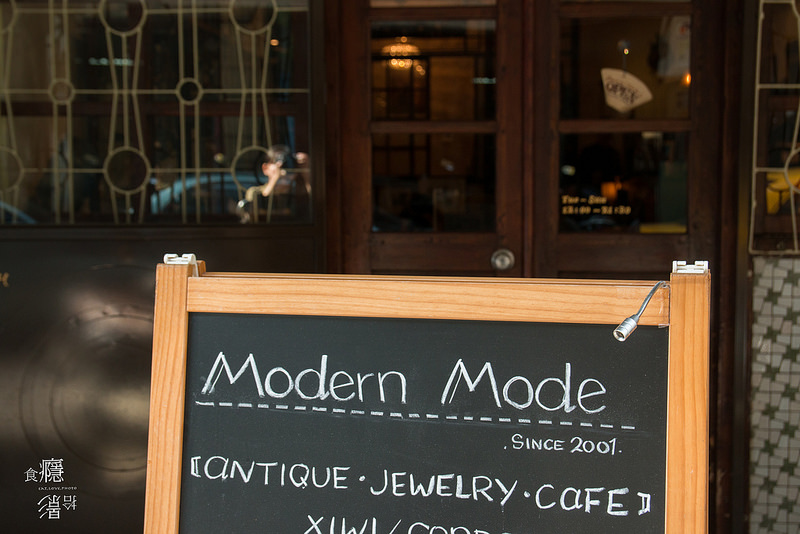 OPEN
Tue - Sun
Modern Mode
.SINCE 2001.
【ANTIQUE・JEWELRY・CAFE】
食癮
EAT.LOVE.PHOTO
拾影